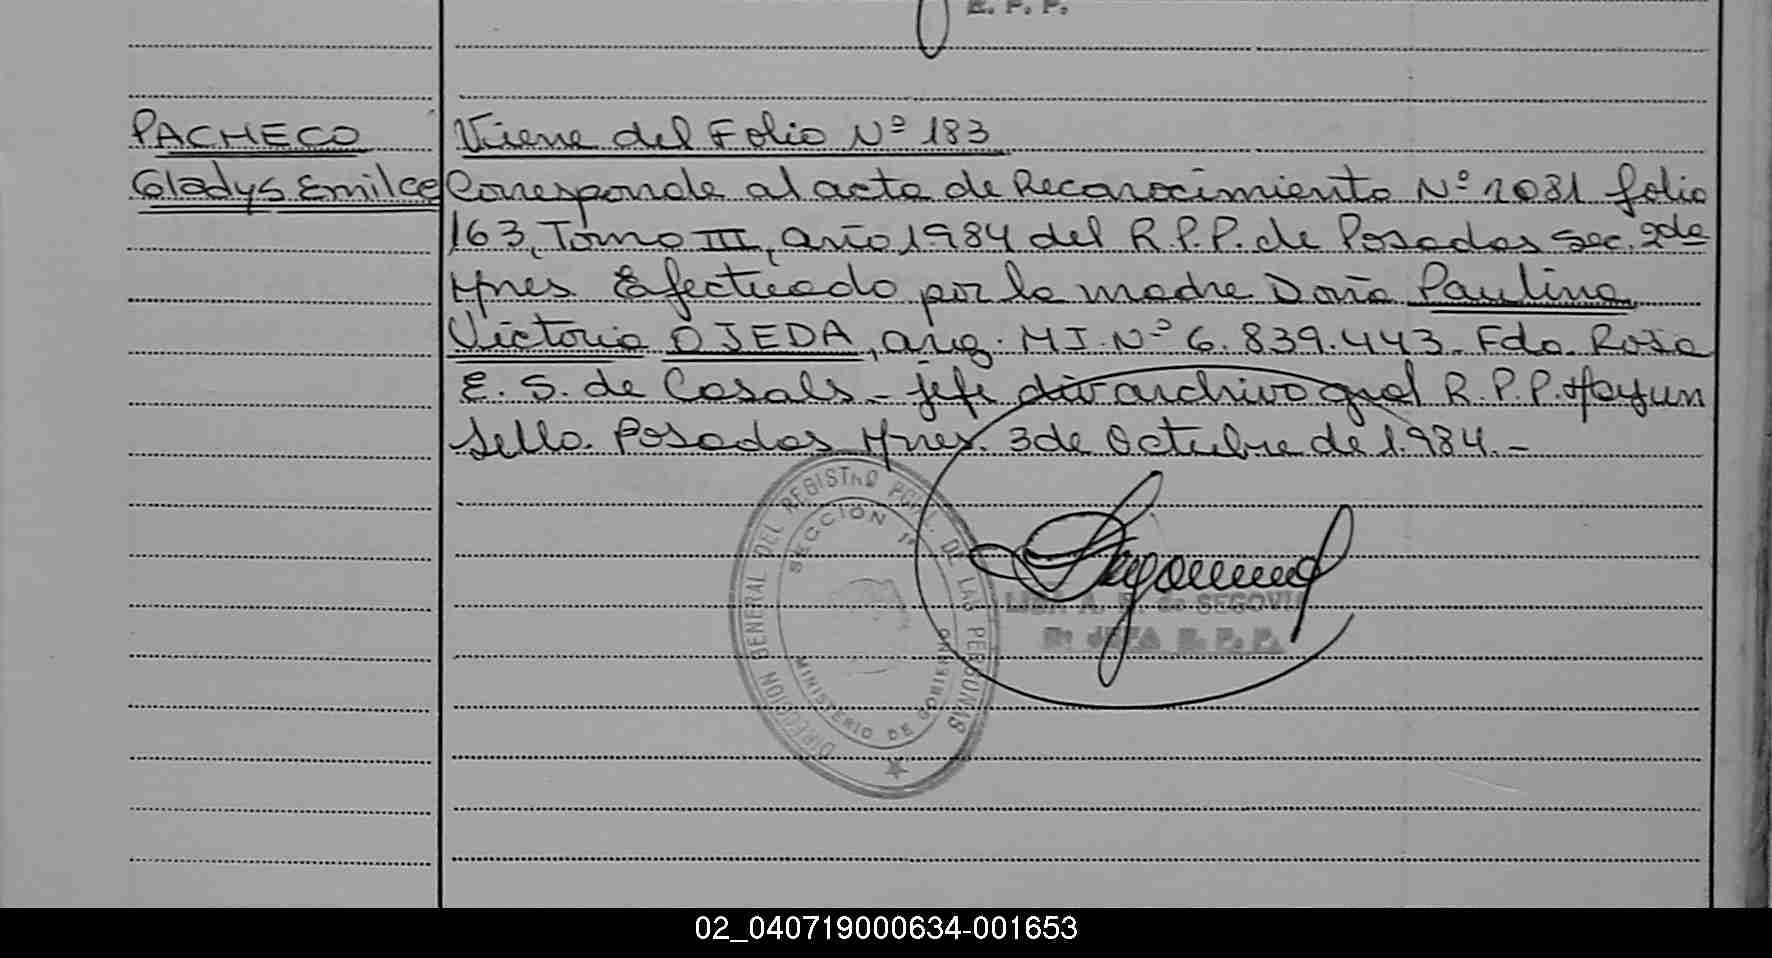 E. P. P.
PACHECO
Gladys Emilce
Viene del Folio Nº 183
Corresponde al acta de Reconocimiento Nº 1031 folio
163, Tomo III, año 1984 del R.P.P. de Posadas Sec. 2da
Mnes Efectuado por la madre Doña Paulina
Victoria OJEDA, arg. MI.Nº 6.839.443. Fdo. Rosa
E. S. de Casals - jefe div archivo gral R.P.P. Hay un
sello. Posadas Mnes. 3 de Octubre de 1.984.-
DIRECCION GENERAL DEL REGISTRO PCIAL. DE LAS PERSONAS
SECCIÓN 1ª
MINISTERIO DE GOBIERNO
A. de SEGOVIA
JEFA R. P. P.
02_040719000634-001653